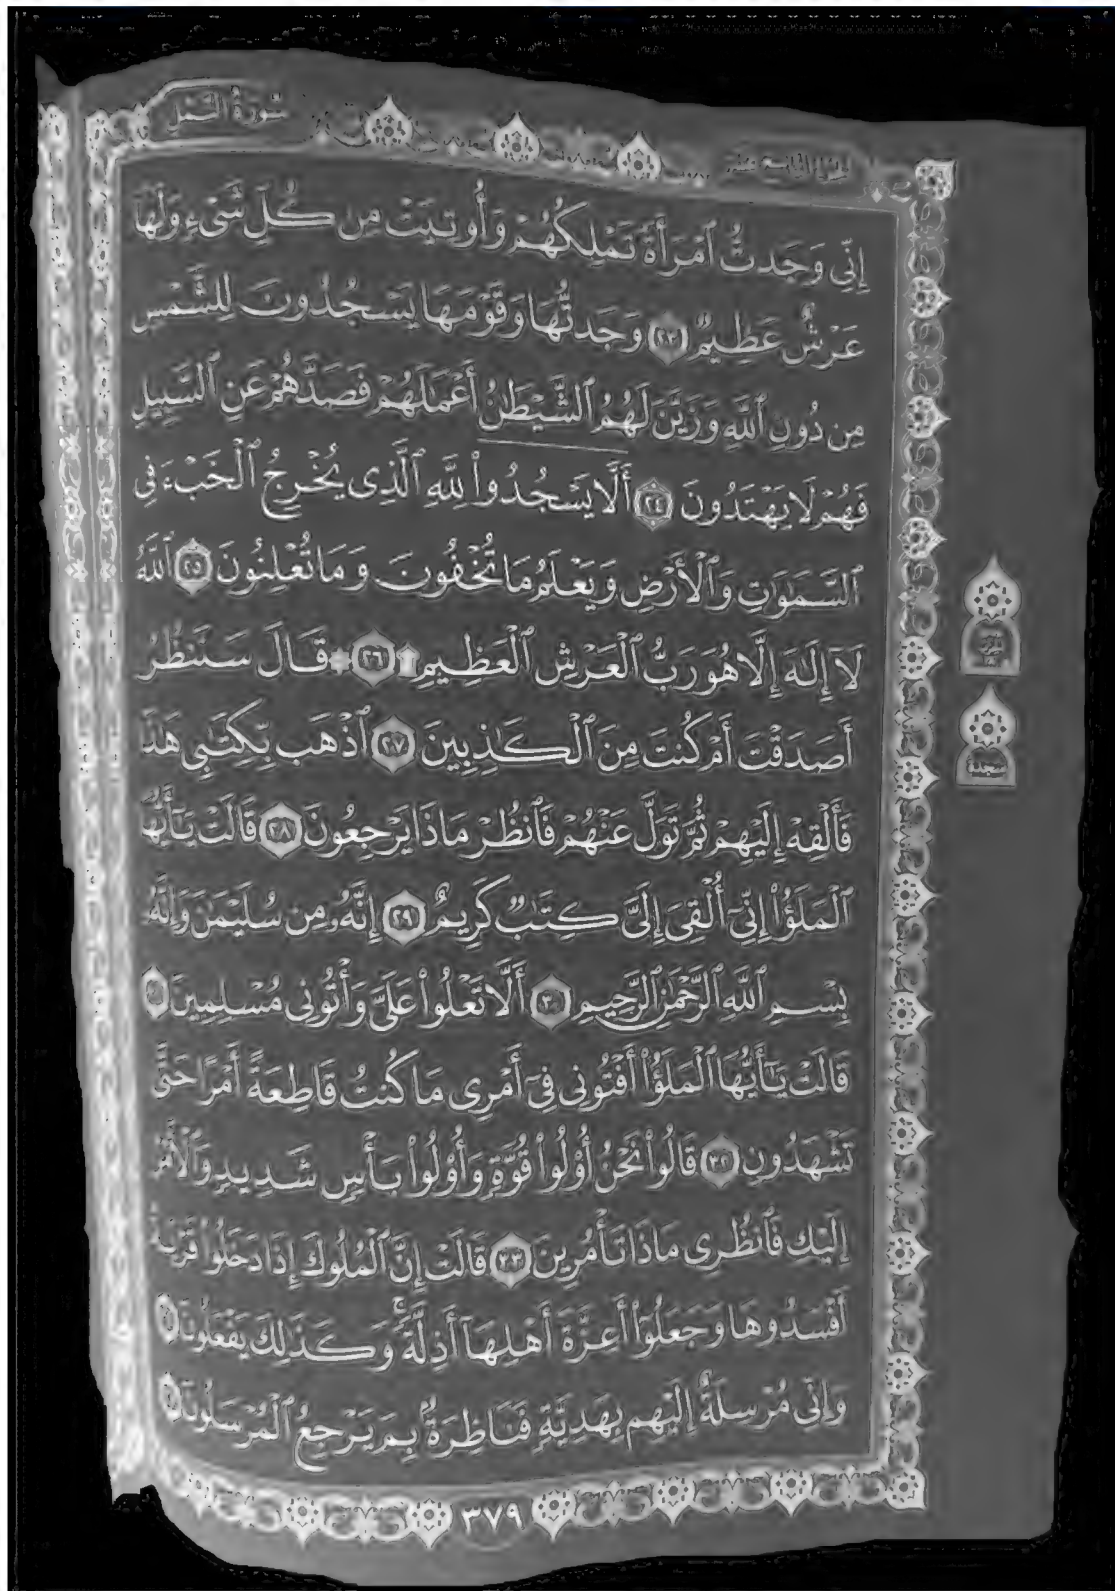 سُورَةُ النَّمْلِ
الجزء التاسع عشر
إِنِّى وَجَدتُّ ٱمْرَأَةً تَمْلِكُهُمْ وَأُوتِيَتْ مِن كُلِّ شَىْءٍ وَلَهَا
عَرْشٌ عَظِيمٌ ٢٣ وَجَدتُّهَا وَقَوْمَهَا يَسْجُدُونَ لِلشَّمْسِ
مِن دُونِ ٱللَّهِ وَزَيَّنَ لَهُمُ ٱلشَّيْطَٰنُ أَعْمَٰلَهُمْ فَصَدَّهُمْ عَنِ ٱلسَّبِيلِ
فَهُمْ لَا يَهْتَدُونَ ٢٤ أَلَّا يَسْجُدُوا۟ لِلَّهِ ٱلَّذِى يُخْرِجُ ٱلْخَبْءَ فِى
ٱلسَّمَٰوَٰتِ وَٱلْأَرْضِ وَيَعْلَمُ مَا تُخْفُونَ وَمَا تُعْلِنُونَ ٢٥ ٱللَّهُ
لَآ إِلَٰهَ إِلَّا هُوَ رَبُّ ٱلْعَرْشِ ٱلْعَظِيمِ ۩ ٢٦ ۞ قَالَ سَنَنظُرُ
أَصَدَقْتَ أَمْ كُنتَ مِنَ ٱلْكَٰذِبِينَ ٢٧ ٱذْهَب بِّكِتَٰبِى هَٰذَا
فَأَلْقِهْ إِلَيْهِمْ ثُمَّ تَوَلَّ عَنْهُمْ فَٱنظُرْ مَاذَا يَرْجِعُونَ ٢٨ قَالَتْ يَٰٓأَيُّهَا
ٱلْمَلَؤُا۟ إِنِّىٓ أُلْقِىَ إِلَىَّ كِتَٰبٌ كَرِيمٌ ٢٩ إِنَّهُۥ مِن سُلَيْمَٰنَ وَإِنَّهُۥ
بِسْمِ ٱللَّهِ ٱلرَّحْمَٰنِ ٱلرَّحِيمِ ٣٠ أَلَّا تَعْلُوا۟ عَلَىَّ وَأْتُونِى مُسْلِمِينَ
قَالَتْ يَٰٓأَيُّهَا ٱلْمَلَؤُا۟ أَفْتُونِى فِىٓ أَمْرِى مَا كُنتُ قَاطِعَةً أَمْرًا حَتَّىٰ
تَشْهَدُونِ ٣٢ قَالُوا۟ نَحْنُ أُو۟لُوا۟ قُوَّةٍ وَأُو۟لُوا۟ بَأْسٍ شَدِيدٍ وَٱلْأَمْرُ
إِلَيْكِ فَٱنظُرِى مَاذَا تَأْمُرِينَ ٣٣ قَالَتْ إِنَّ ٱلْمُلُوكَ إِذَا دَخَلُوا۟ قَرْيَةً
أَفْسَدُوهَا وَجَعَلُوٓا۟ أَعِزَّةَ أَهْلِهَآ أَذِلَّةً ۖ وَكَذَٰلِكَ يَفْعَلُونَ
وَإِنِّى مُرْسِلَةٌ إِلَيْهِم بِهَدِيَّةٍ فَنَاظِرَةٌۢ بِمَ يَرْجِعُ ٱلْمُرْسَلُونَ
سجدة
٣٧٩